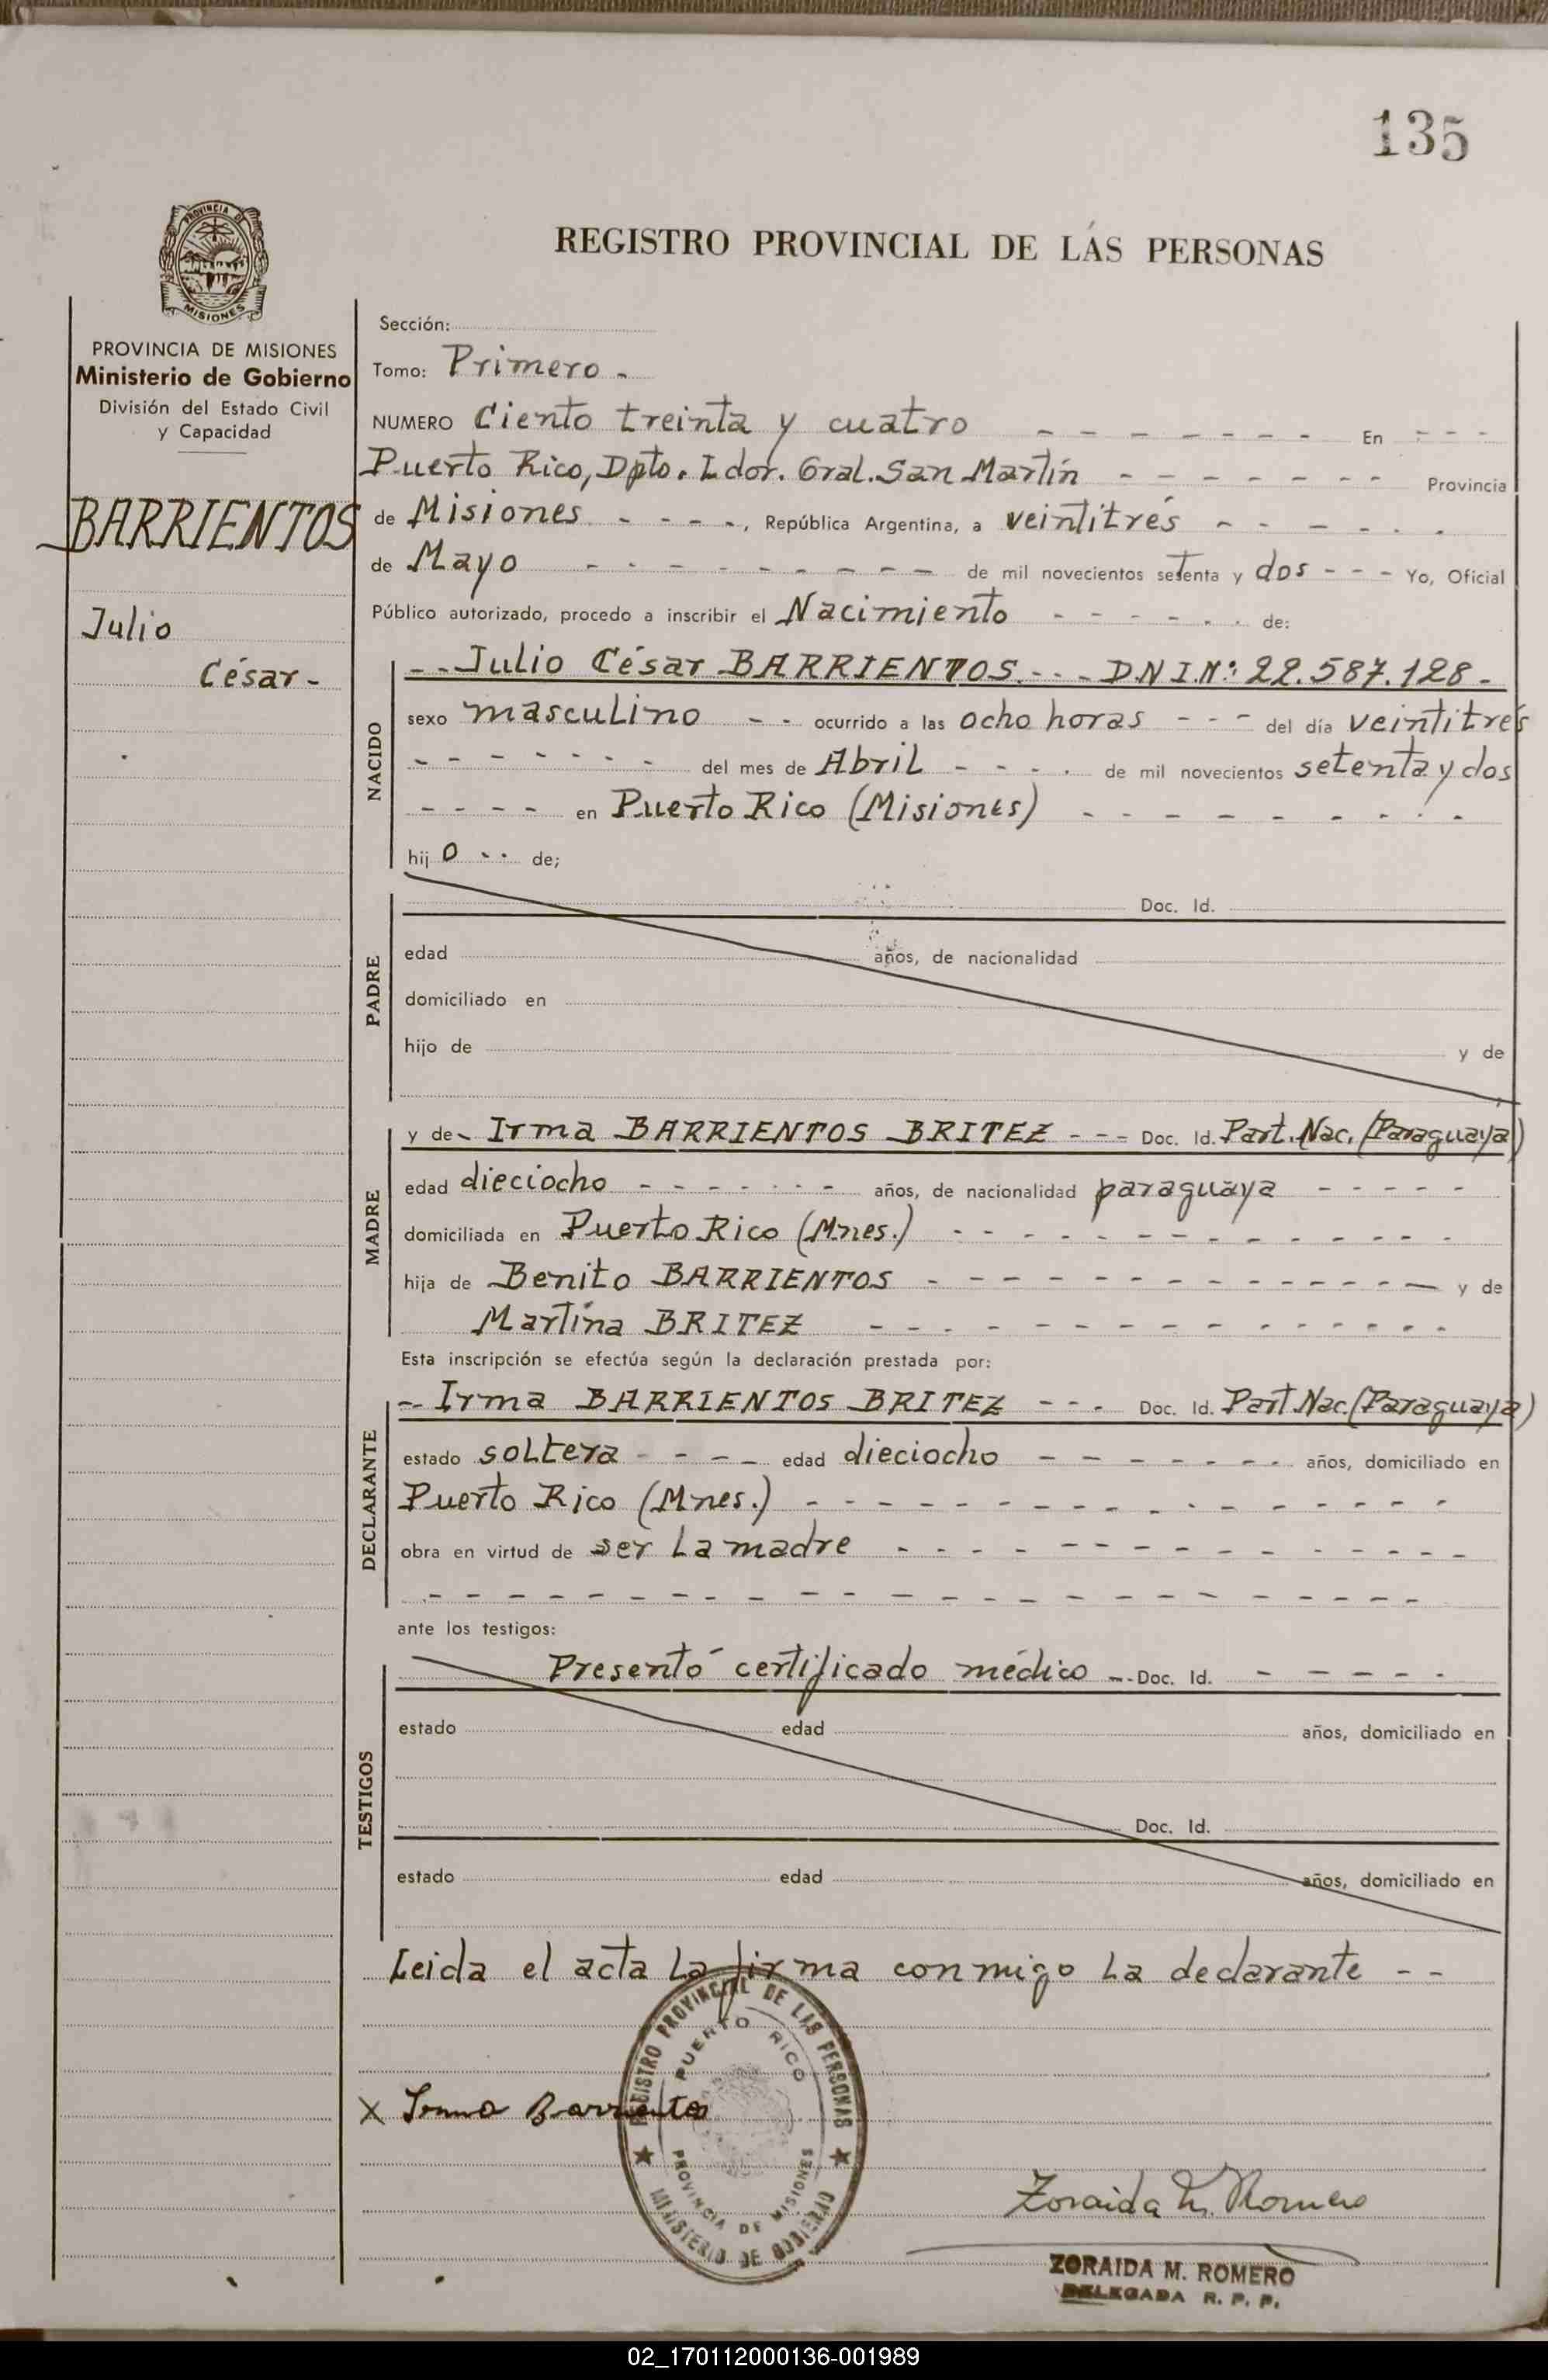 135
PROVINCIA DE
MISIONES
REGISTRO PROVINCIAL DE LAS PERSONAS
PROVINCIA DE MISIONES
Ministerio de Gobierno
División del Estado Civil
y Capacidad
BARRIENTOS
Julio
César -
Sección:
Tomo: Primero -
NUMERO Ciento treinta y cuatro - - - - - - - En - - -
Puerto Rico, Dpto. Ldor. Gral. San Martín - - - - - - - Provincia
de Misiones - - - -, República Argentina, a veintitrés - - - - - -
de Mayo - - - - - - - - - de mil novecientos setenta y dos - - - Yo, Oficial
Público autorizado, procedo a inscribir el Nacimiento - - - - - - de:
NACIDO
- - Julio César BARRIENTOS - - - DNI.N°: 22.587.128 -
sexo masculino - - ocurrido a las ocho horas - - - del día veintitrés
- - - - - - - del mes de Abril - - - - de mil novecientos setenta y dos
- - - - en Puerto Rico (Misiones) - - - - - - - - - -
hij o - - de;
PADRE
Doc. Id.
edad años, de nacionalidad
domiciliado en
hijo de y de
MADRE
y de - Irma BARRIENTOS BRITEZ - - - Doc. Id. Part. Nac. (Paraguaya)
edad dieciocho - - - - - - - años, de nacionalidad paraguaya - - - - -
domiciliada en Puerto Rico (Mnes.) - - - - - - - - - - - - -
hija de Benito BARRIENTOS - - - - - - - - - - - - - y de
Martina BRITEZ - - - - - - - - - - - - - - -
Esta inscripción se efectúa según la declaración prestada por:
DECLARANTE
- Irma BARRIENTOS BRITEZ - - - Doc. Id. Part. Nac. (Paraguaya)
estado soltera - - - - edad dieciocho - - - - - - - años, domiciliado en
Puerto Rico (Mnes.) - - - - - - - - - - - - - - - - -
obra en virtud de ser la madre - - - - - - - - - - - - - - -
- - - - - - - - - - - - - - - - - - - - - - - - -
ante los testigos:
TESTIGOS
Presentó certificado médico - - Doc. Id. - - - - -
estado edad años, domiciliado en
Doc. Id.
estado edad años, domiciliado en
Leida el acta la firma conmigo la declarante - -
REGISTRO PROVINCIAL DE LAS PERSONAS
PUERTO RICO
PROVINCIA DE MISIONES
MINISTERIO DE GOBIERNO
X Irma Barrientos
Zoraida M. Romero
ZORAIDA M. ROMERO
DELEGADA R. P. P.
02_170112000136-001989